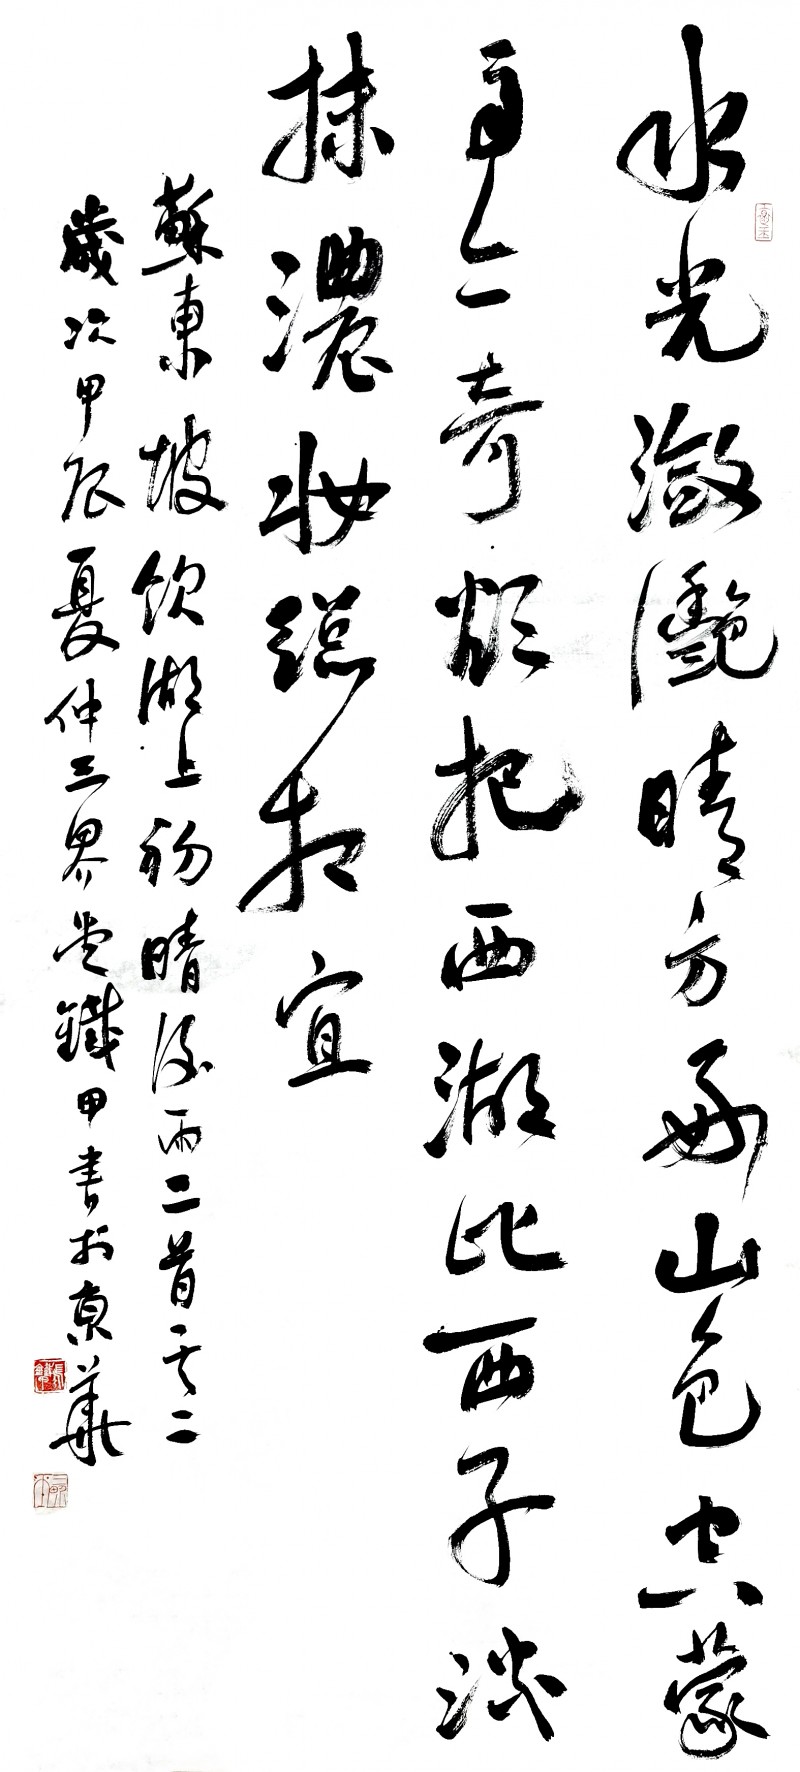 水光潋灧晴方好山色空蒙
雨亦奇欲把西湖比西子淡
抹濃妝總相宜
蘇東坡飲湖上初晴後雨二首其二
歲次甲辰夏仲三界堂鐵甲書於京華